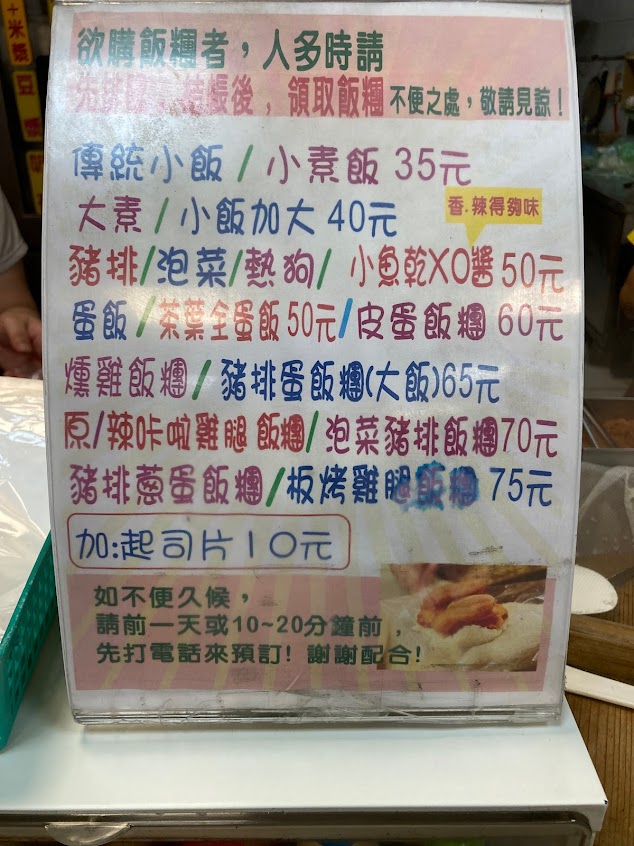 十米漿
豆漿
欲購飯糰者,人多時請
先排隊,結帳後,領取飯糰 不便之處,敬請見諒!
傳統小飯/小素飯 35元
大素/小飯加大 40元
香.辣得夠味
豬排/泡菜/熱狗/ 小魚乾XO醬50元
蛋飯/茶葉全蛋飯50元/皮蛋飯糰 60元
燻雞飯糰/豬排蛋飯糰(大飯)65元
原/辣咔啦雞腿 飯糰/泡菜豬排飯糰70元
豬排蔥蛋飯糰/板烤雞腿飯糰 75元
加:起司片10元
如不便久候,
請前一天或10~20分鐘前,
先打電話來預訂!謝謝配合!